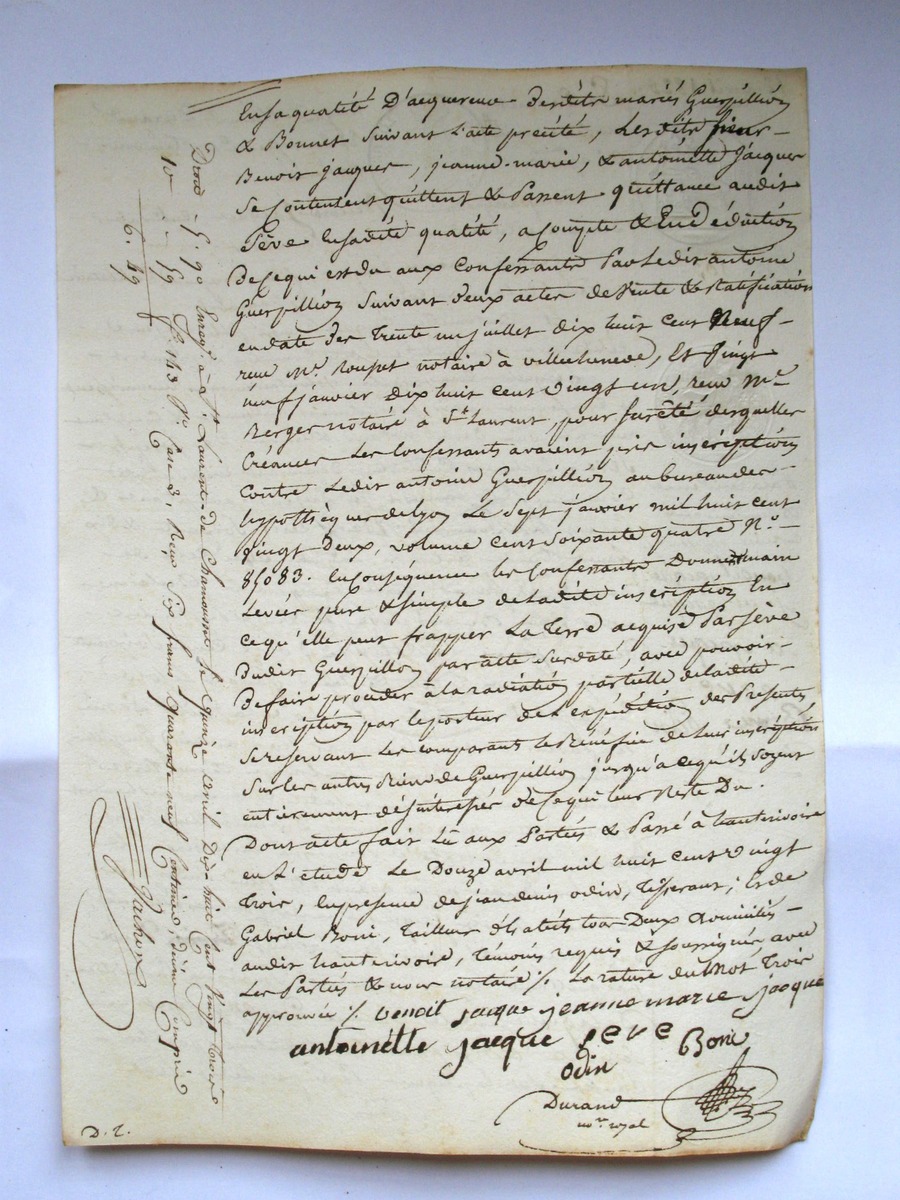 En sa qualité D'acquereur desdits mariés Guerpillion
& Bonnet suivant l'acte précité, Lesdits sieur
Benoit jacques, jeanne-marie, & antoinette Jacques
se contentent quittent & Passent quittance audit
Sève en sadite qualité, a compte & En Déduction
De ce qui est du aux Confessants Par Ledit antoine
Guerpillion suivant deux actes de vente & Ratification
en date des trente un juillet dix huit cent Neuf
reçu Me. notaire à villechenève, Et Vingt
neuf janvier dix huit cent vingt un, reçu Me.
Berger notaire à St. Laurent, pour sureté desquelles
Créances Les Confessants avaient pris inscription
Contre Ledit antoine Guerpillion au bureau des
hypothèques de Lyon Le Sept janvier mil huit cent
vingt Deux, volume cent soixante quatre No.
85083. En conséquence les Confessants Donnent main
Levée pure & simple de Ladite inscription En
ce qu'elle peut frapper La Terre acquise Par Sève
Dudit Guerpillon par acte susdaté, avec pouvoir
De faire proceder à la radiation partielle de ladite
inscription par le porteur de l'expédition des Presentes,
se reservant Les comparants le Bénéfice de leur inscription
sur les autres Biens de Guerpillion jusqu'a ce qu'ils soyent
entierement désinteressés de ce qui leur Reste Du.
Dont acte fait Lu aux Parties & Passé à hauterivoire
en L'étude Le Douze avril mil huit cent vingt
Trois, en presence de jean denis odin, Tisserant, Et de
Gabriel Boni, Tailleur d'habits tous Deux domiciliés
audit hauterivoire, Témoins requis & soussignés avec
Les Parties & nous notaire ./. La rature du Mot Trois
approuvée ./. benoit jacque jeanne marie jacque
antoinette jacque seve Boni
odin
Durand
nore. royal
Droit 5. 90 Enregé. à St. Laurent-de Chamousset le quinze avril Dix huit Cent Vingt trois
10 . 59 fo. 143 Vo. Case 3, Reçu Six francs quarante neuf Centimes, dixième Compris
6. 49
D. 2.